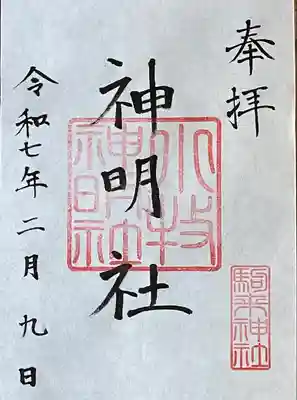 奉拝
神明社
小牧
神明社
令和七年二月九日
駒来神社